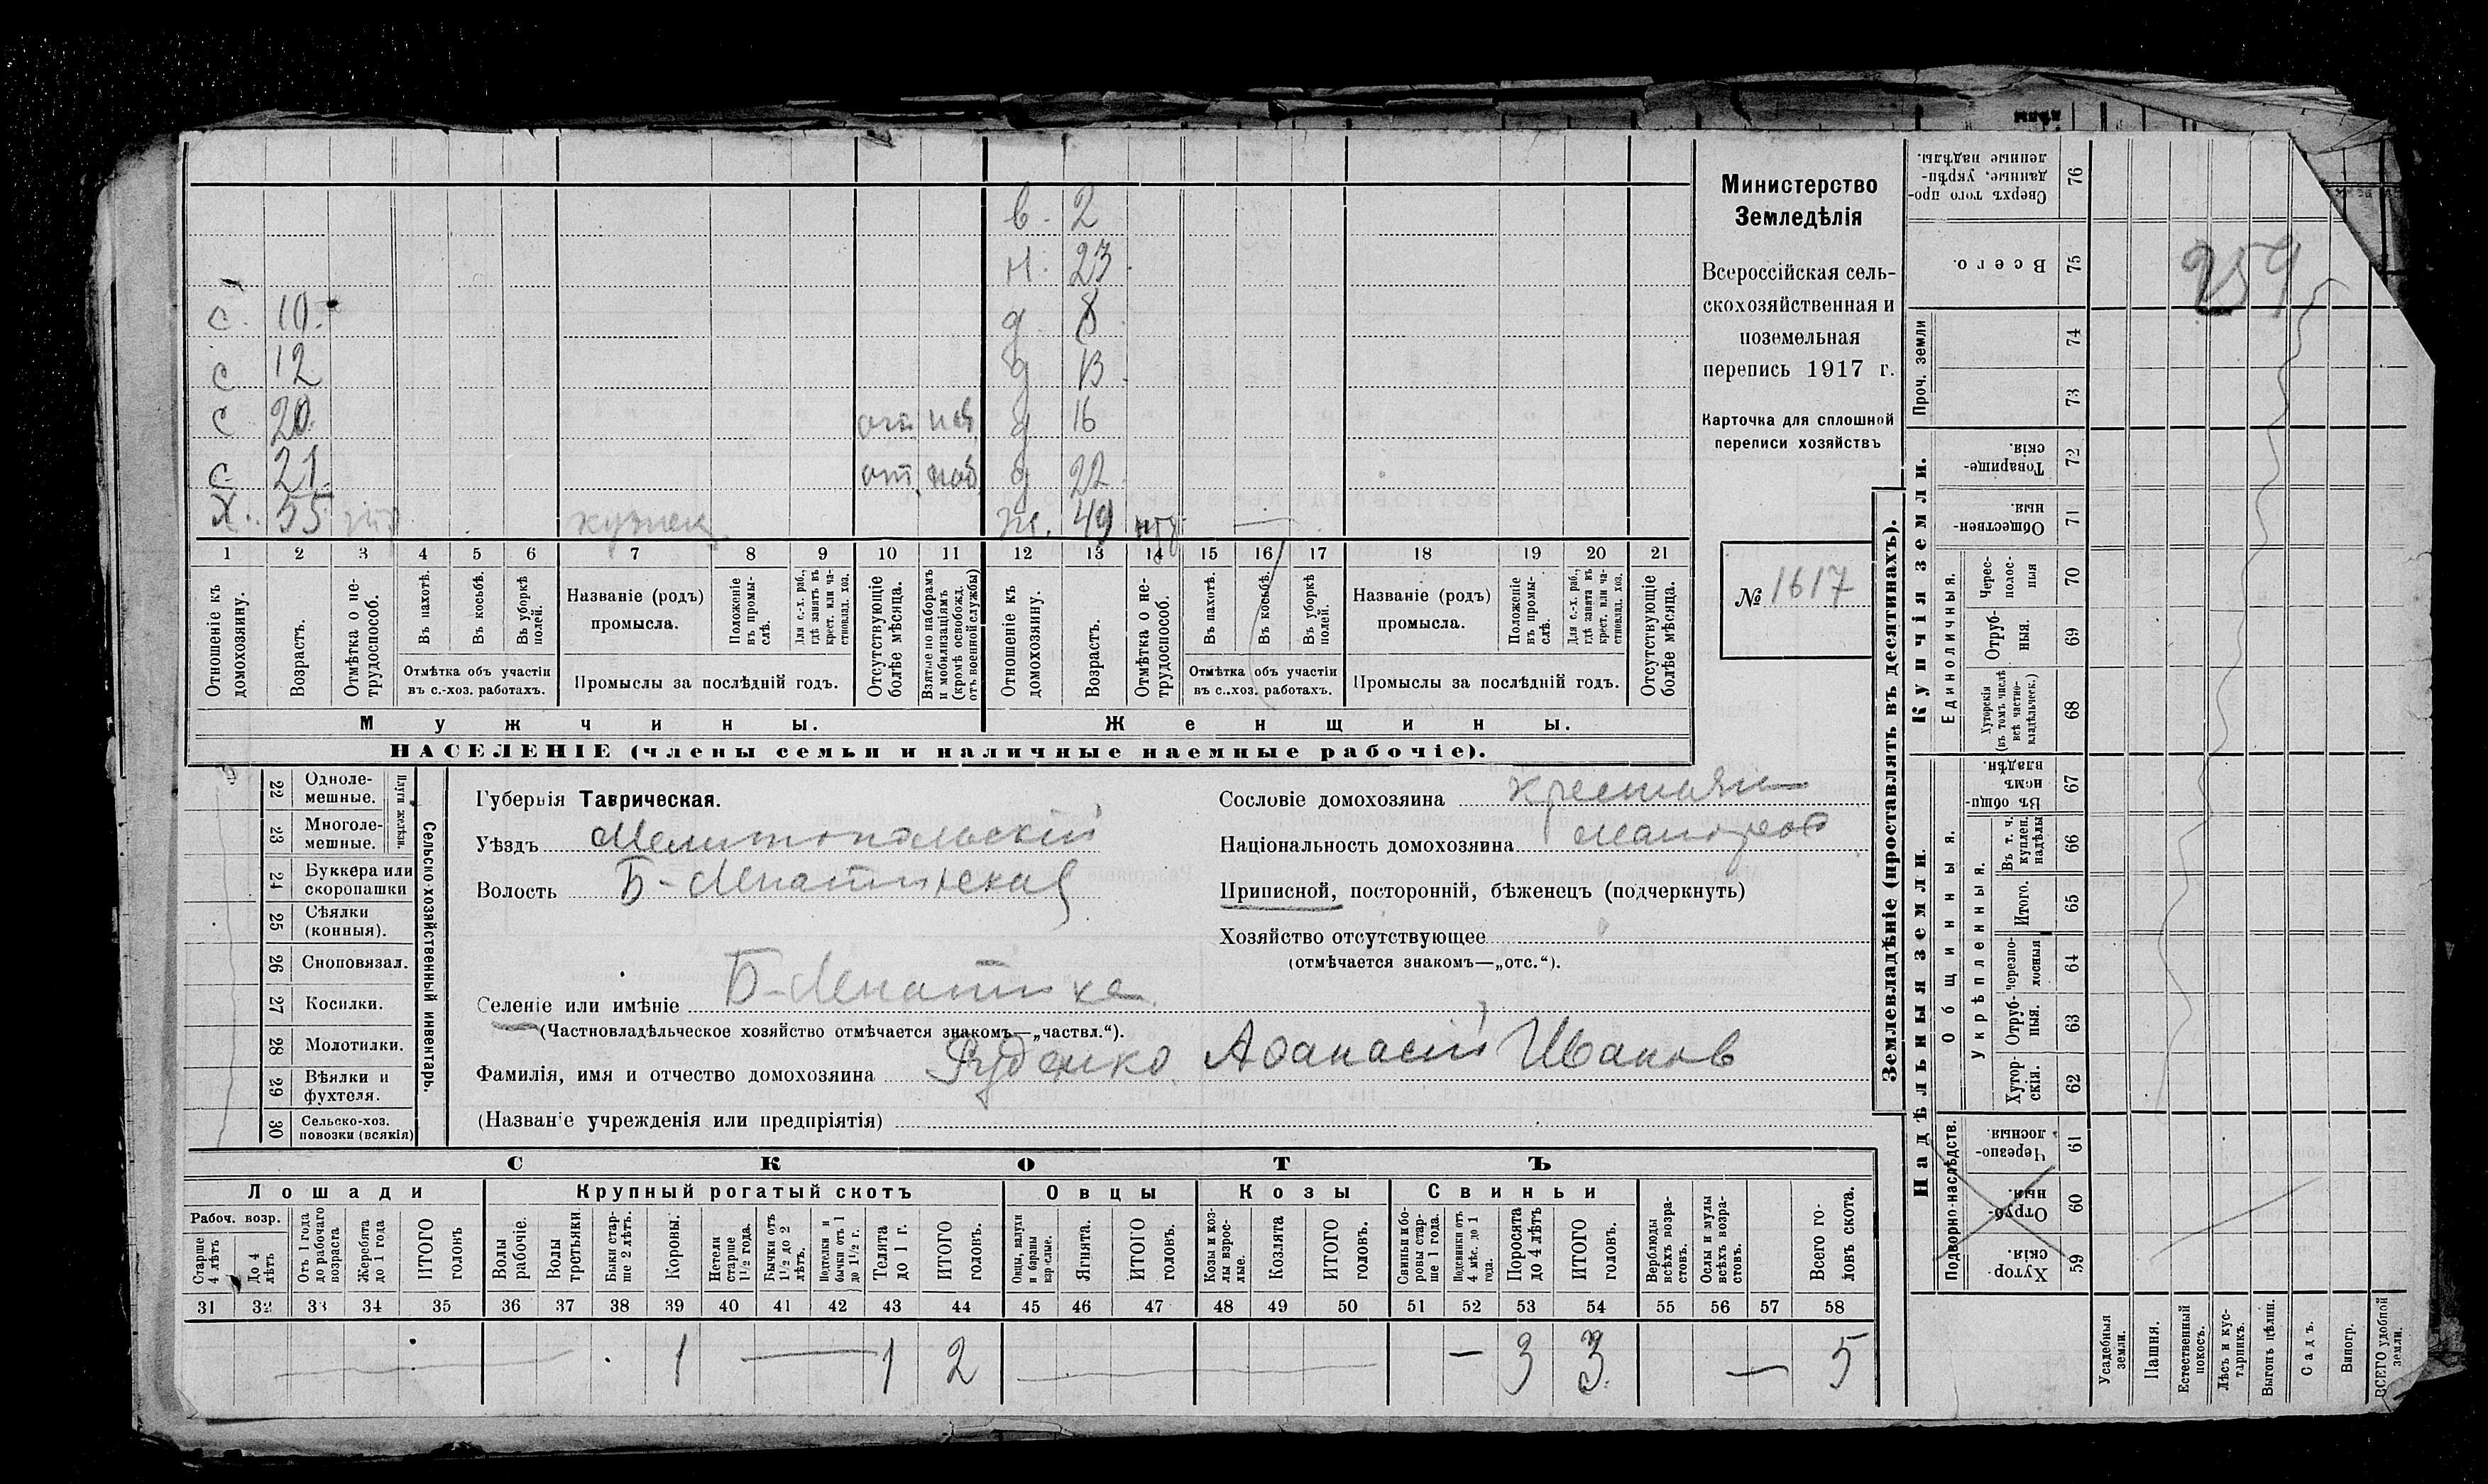 в. 2
н. 23
с. 10. д. 8
с 12 д 13
с 20 от. наб. д 16
с 21 от. наб. д 22
Х. 55 кузнец ж. 49 нтр
1 2 3 4 5 6 7 8 9 10 11 12 13 14 15 16 17 18 19 20 21
Отношеніе къ домохозяину.
Возрастъ.
Отмѣтка о нетрудоспособ.
Въ пахотѣ.
Въ косьбѣ.
Въ уборкѣ полей.
Отмѣтка объ участіи въ с.-хоз. работахъ.
Названіе (родъ) промысла.
Положеніе въ промыслѣ.
Для с.-х. раб., гдѣ занятъ въ крест. или частновлад. хоз.
Промыслы за послѣдній годъ.
Отсутствующіе болѣе мѣсяца.
Взятые по наборамъ и мобилизаціямъ (кромѣ освобожд. отъ военной службы)
Отношеніе къ домохозяину.
Возрастъ.
Отмѣтка о нетрудоспособ.
Въ пахотѣ.
Въ косьбѣ.
Въ уборкѣ полей.
Отмѣтка объ участіи въ с.-хоз. работахъ.
Названіе (родъ) промысла.
Положеніе въ промыслѣ.
Для с.-х. раб., гдѣ занята въ крест. или частновлад. хоз.
Промыслы за послѣдній годъ.
Отсутствующіе болѣе мѣсяца.
Мужчины. Женщины.
НАСЕЛЕНІЕ (члены семьи и наличные наемные рабочіе).
Министерство
Земледѣлія
Всероссійская сель-
скохозяйственная и
поземельная
перепись 1917 г.
Карточка для сплошной
переписи хозяйствъ
№ 1617
Сельско-хозяйственный инвентарь.
Плуги желѣзн.
22 Одноле-мешные.
23 Многоле-мешные.
24 Буккера или скоропашки
25 Сѣялки (конныя).
26 Сноповязал.
27 Косилки.
28 Молотилки.
29 Вѣялки и фухтеля.
30 Сельско-хоз. повозки (всякія)
Губернія Таврическая.
Уѣздъ Мелитопольскій
Волость Б-Лепатихская
Селеніе или имѣніе Б-Лепатиха
(Частновладѣльческое хозяйство отмѣчается знакомъ—„частвл.“).
Фамилія, имя и отчество домохозяина Руденко Афанасий Иванов
(Названіе учрежденія или предпріятія)
Сословіе домохозяина крестьян
Національность домохозяина малорос
Приписной, посторонній, бѣженецъ (подчеркнуть)
Хозяйство отсутствующее
(отмѣчается знакомъ—„отс.“).
СКОТЪ
Лошади Крупный рогатый скотъ Овцы Козы Свиньи
Рабоч. возр.
Старше 4 лѣтъ
До 4 лѣтъ
Отъ 1 года до рабочаго возраста
Жеребята до 1 года
ИТОГО головъ
Волы рабочіе.
Волы третьяки
Быки старше 2 лѣтъ.
Коровы.
Нетели старше 1½ года.
Бычки отъ 1½ до 2 лѣтъ.
Подтелки и бычки отъ 1 до 1½ г.
Телята до 1 г.
ИТОГО головъ.
Овцы, валухи и бараны взрослые.
Ягнята.
ИТОГО головъ.
Козы и козлы взрослые.
Козлята
ИТОГО головъ.
Свиньи и боровы старше 1 года.
Подсвинки отъ 4 мѣс. до 1 года.
Поросята до 4 лѣтъ
ИТОГО головъ.
Верблюды всѣхъ возрастовъ.
Ослы и мулы всѣхъ возрастовъ.
Всего головъ скота.
31 32 33 34 35 36 37 38 39 40 41 42 43 44 45 46 47 48 49 50 51 52 53 54 55 56 57 58
1 — 1 2 — 3 3. — 5
Землевладѣніе (проставлять въ десятинахъ).
Купчія земли.
Надѣльныя земли.
Сверхъ того проданные, укрѣпленные надѣлы. 76
Всего. 75
Проч. земли 74
73
Товарищескія. 72
Общественныя. 71
Единоличныя.
Чересполосныя 70
Отрубныя. 69
Хуторскія (въ томъ числѣ всѣ частновладѣльческ.) 68
Общинныя.
Въ общинномъ владѣн. 67
Укрѣпленныя.
Въ т. ч. куплен. надѣлы 66
Итого. 65
Черезполосныя 64
Отрубныя. 63
Хуторскія. 62
Подворно-наслѣдств.
Черезполосныя. 61
Отрубныя. 60
Хуторскія. 59
259
Усадебныя земли.
Пашня.
Естественный покосъ.
Лѣсъ и кустарникъ.
Выгонъ цѣлин.
Садъ.
Виногр.
ВСЕГО удобной земли.